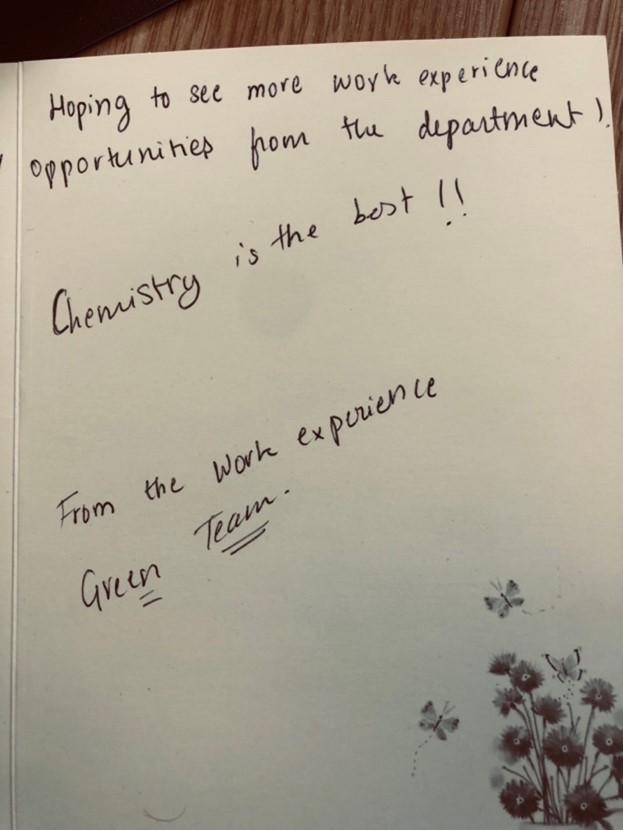 Hoping to see more work experience
opportunities from the department!.
Chemistry is the best!!
From the Work experience
Green Team.